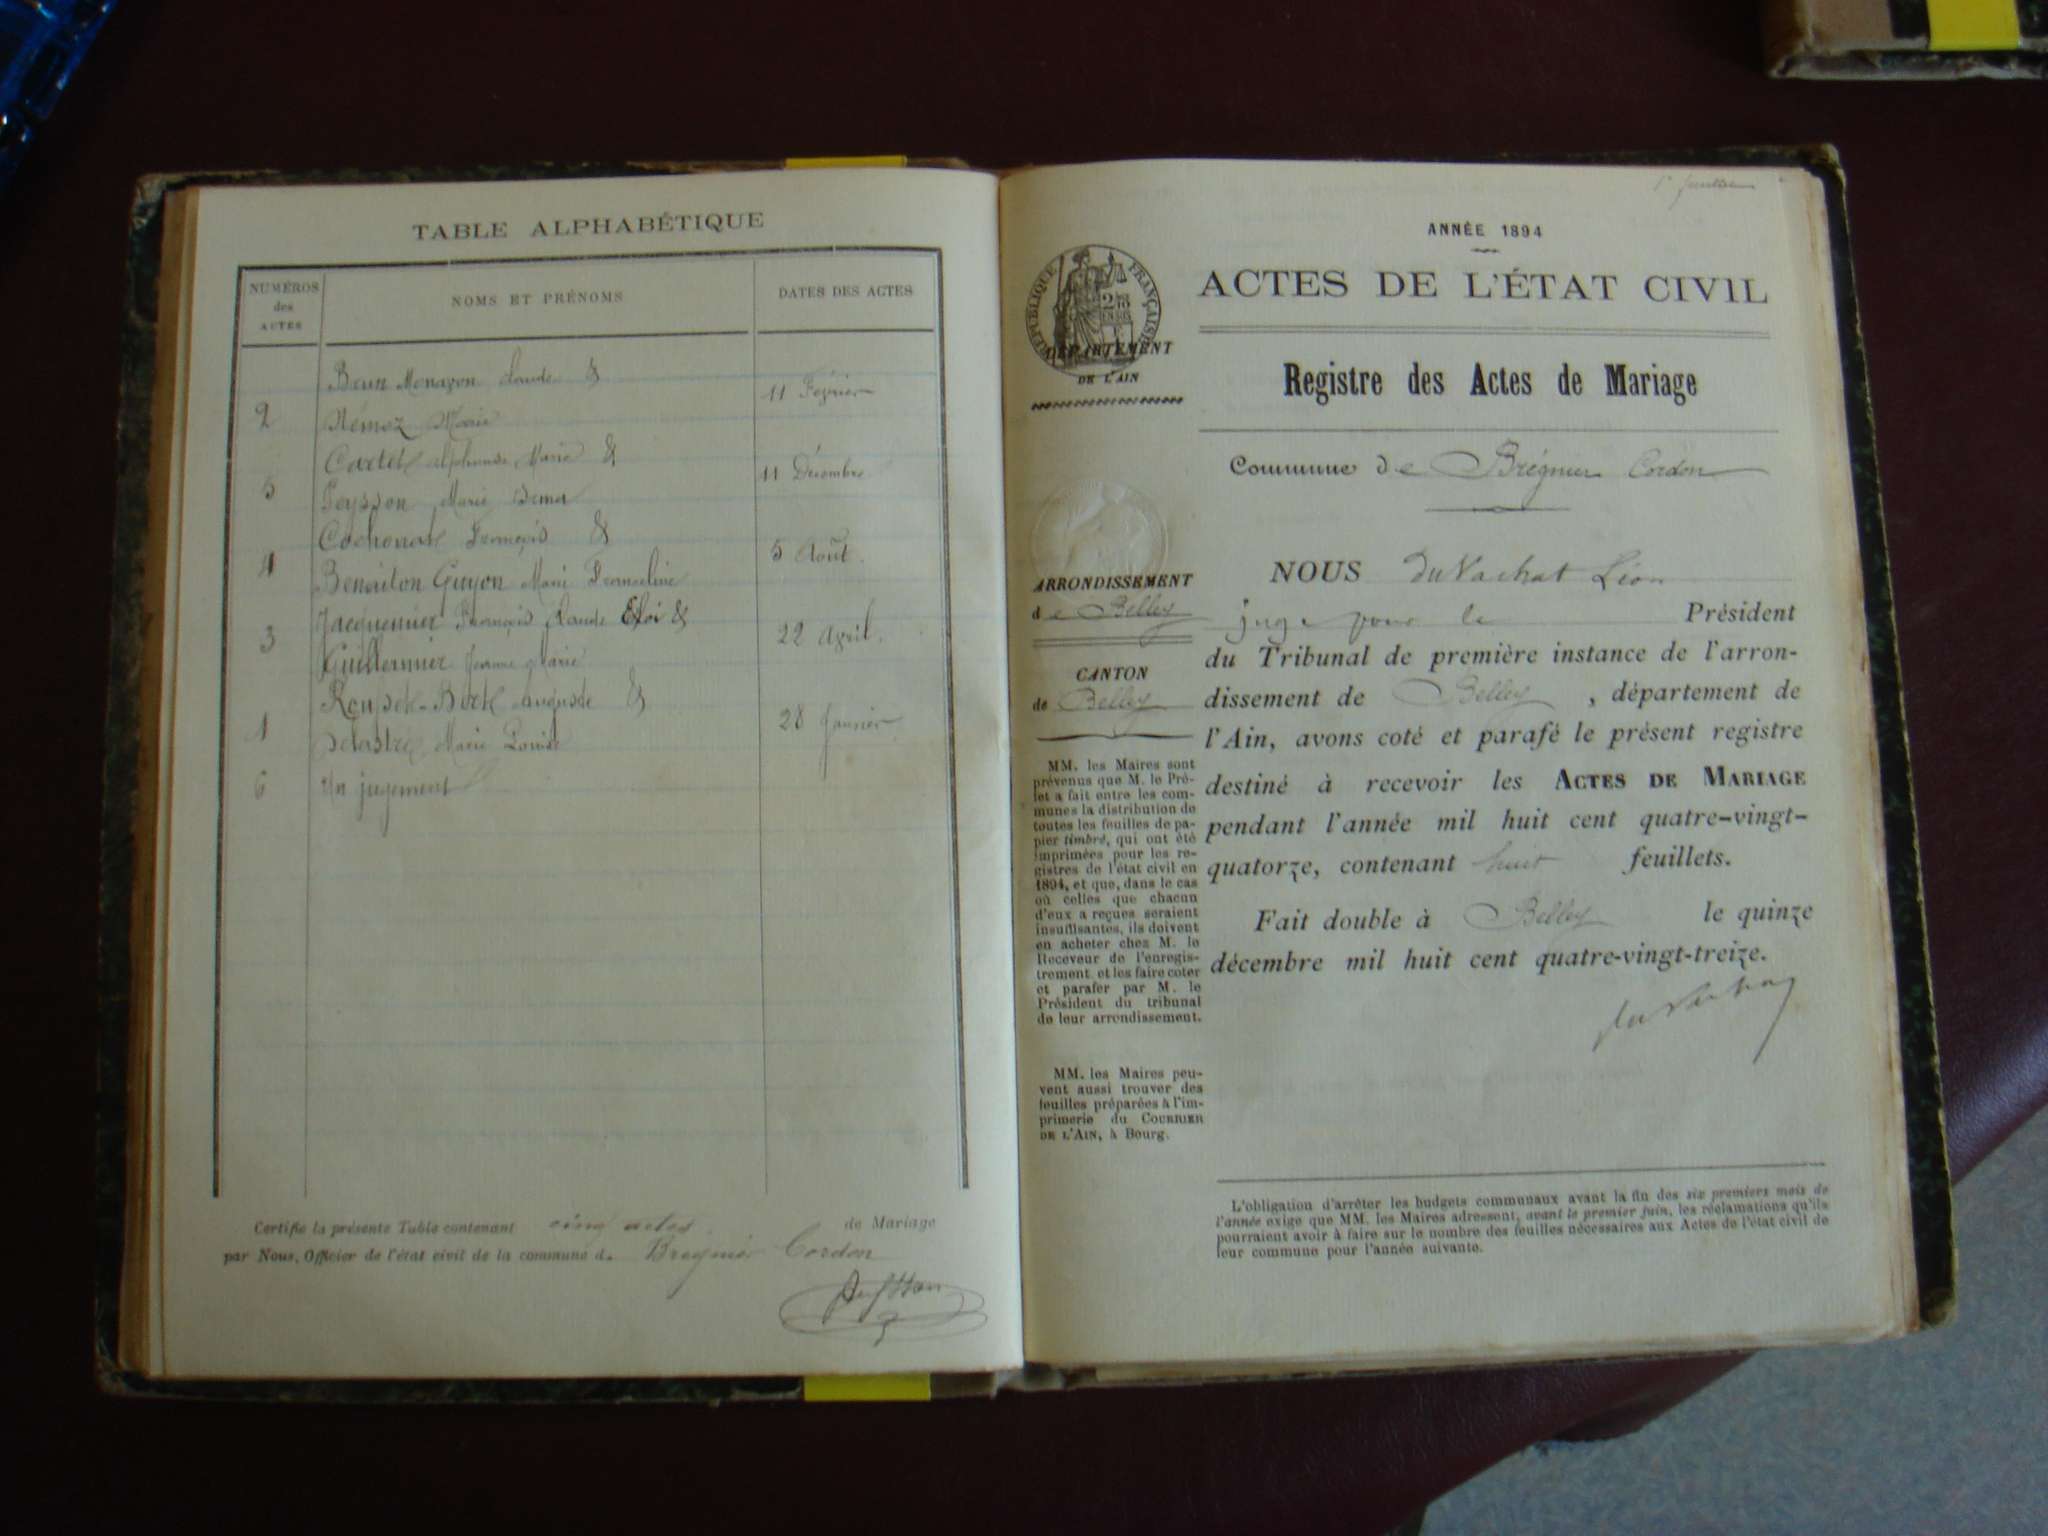 TABLE ALPHABÉTIQUE
NUMÉROS
des
ACTES
NOMS ET PRÉNOMS
DATES DES ACTES
Brun Monazon Claude &
2
Némoz Marie
11 Février
Cartel Alphonse Marie &
5
Peysson Marie
11 Décembre
Cochonat François &
4
Benoiton Guyon Marie Franceline
5 Août
Jacquemier François Claude Eloi &
3
Guillermier Jeanne Marie
22 Avril
Auguste &
1
Delastre Marie Louise
28 Janvier
6
Un jugement
Certifie la présente Table contenant cinq actes de Mariage
par Nous, Officier de l'état civil de la commune de Bregnier Cordon
ANNÉE 1894
ACTES DE L'ÉTAT CIVIL
RÉPUBLIQUE FRANÇAISE
DÉPARTEMENT
DE L'AIN
Registre des Actes de Mariage
Commune de Brégnier Cordon
ARRONDISSEMENT
de Belley
CANTON
de Belley
MM. les Maires sont
prévenus que M. le Pré-
fet a fait entre les com-
munes la distribution de
toutes les feuilles de pa-
pier timbré, qui ont été
imprimées pour les re-
gistres de l'état civil en
1894, et que, dans le cas
où celles que chacun
d'eux a reçues seraient
insuffisantes, ils doivent
en acheter chez M. le
Receveur de l'enregis-
trement et les faire coter
et parafer par M. le
Président du tribunal
de leur arrondissement.
MM. les Maires peu-
vent aussi trouver des
feuilles préparées à l'im-
primerie du COURRIER
DE L'AIN, à Bourg.
NOUS du Vachat Léon
juge pour le Président
du Tribunal de première instance de l'arron-
dissement de Belley, département de
l'Ain, avons coté et parafé le présent registre
destiné à recevoir les ACTES DE MARIAGE
pendant l'année mil huit cent quatre-vingt-
quatorze, contenant huit feuillets.
Fait double à Belley le quinze
décembre mil huit cent quatre-vingt-treize.
du Vachat
L'obligation d'arrêter les budgets communaux avant la fin des six premiers mois de
l'année exige que MM. les Maires adressent, avant le premier juin, les réclamations qu'ils
pourraient avoir à faire sur le nombre des feuilles nécessaires aux Actes de l'état civil de
leur commune pour l'année suivante.